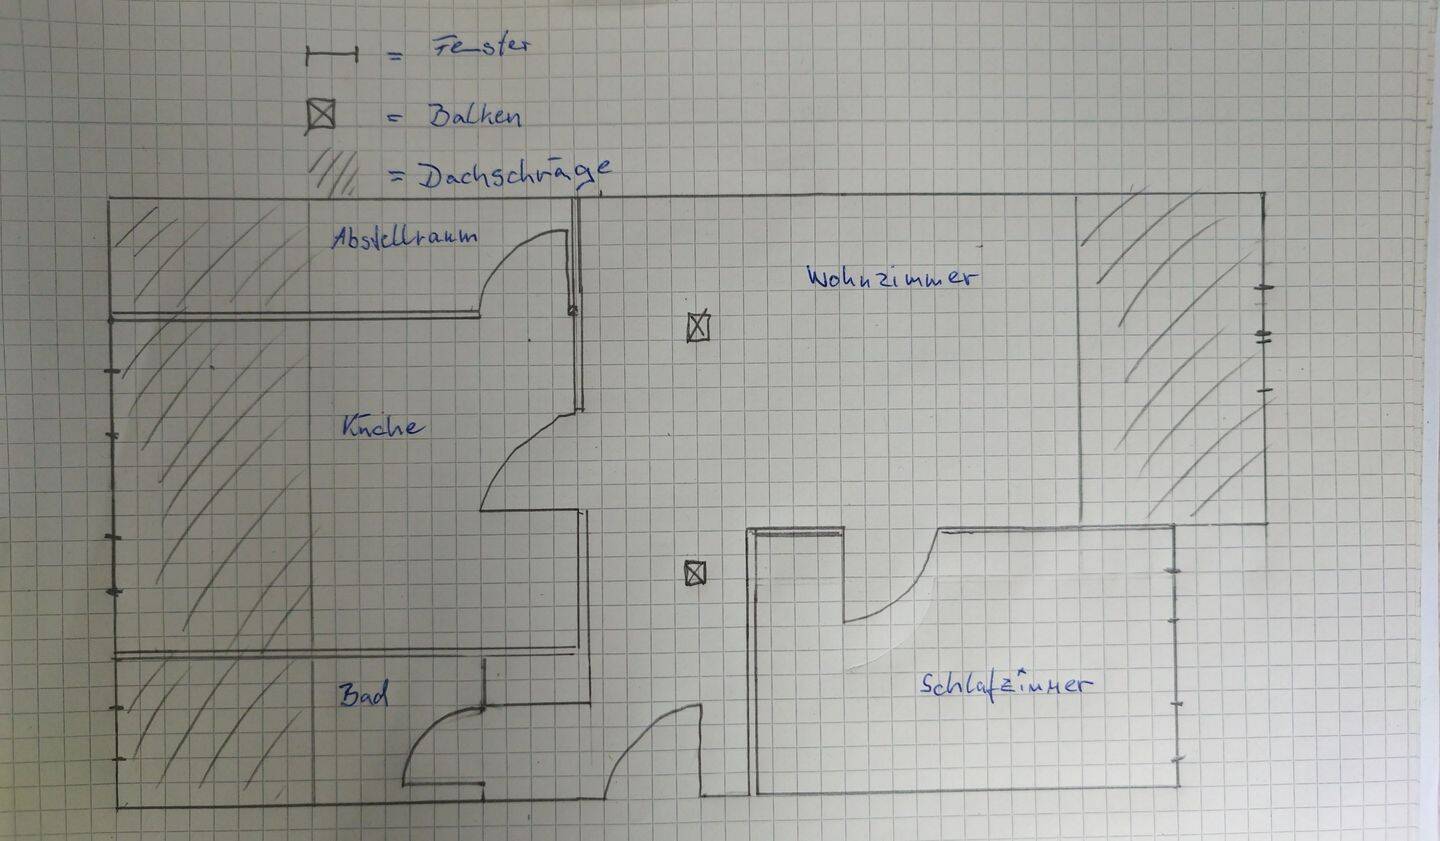 = Fenster
= Balken
= Dachschräge
Abstellraum
Wohnzimmer
Küche
Bad
Schlafzimmer